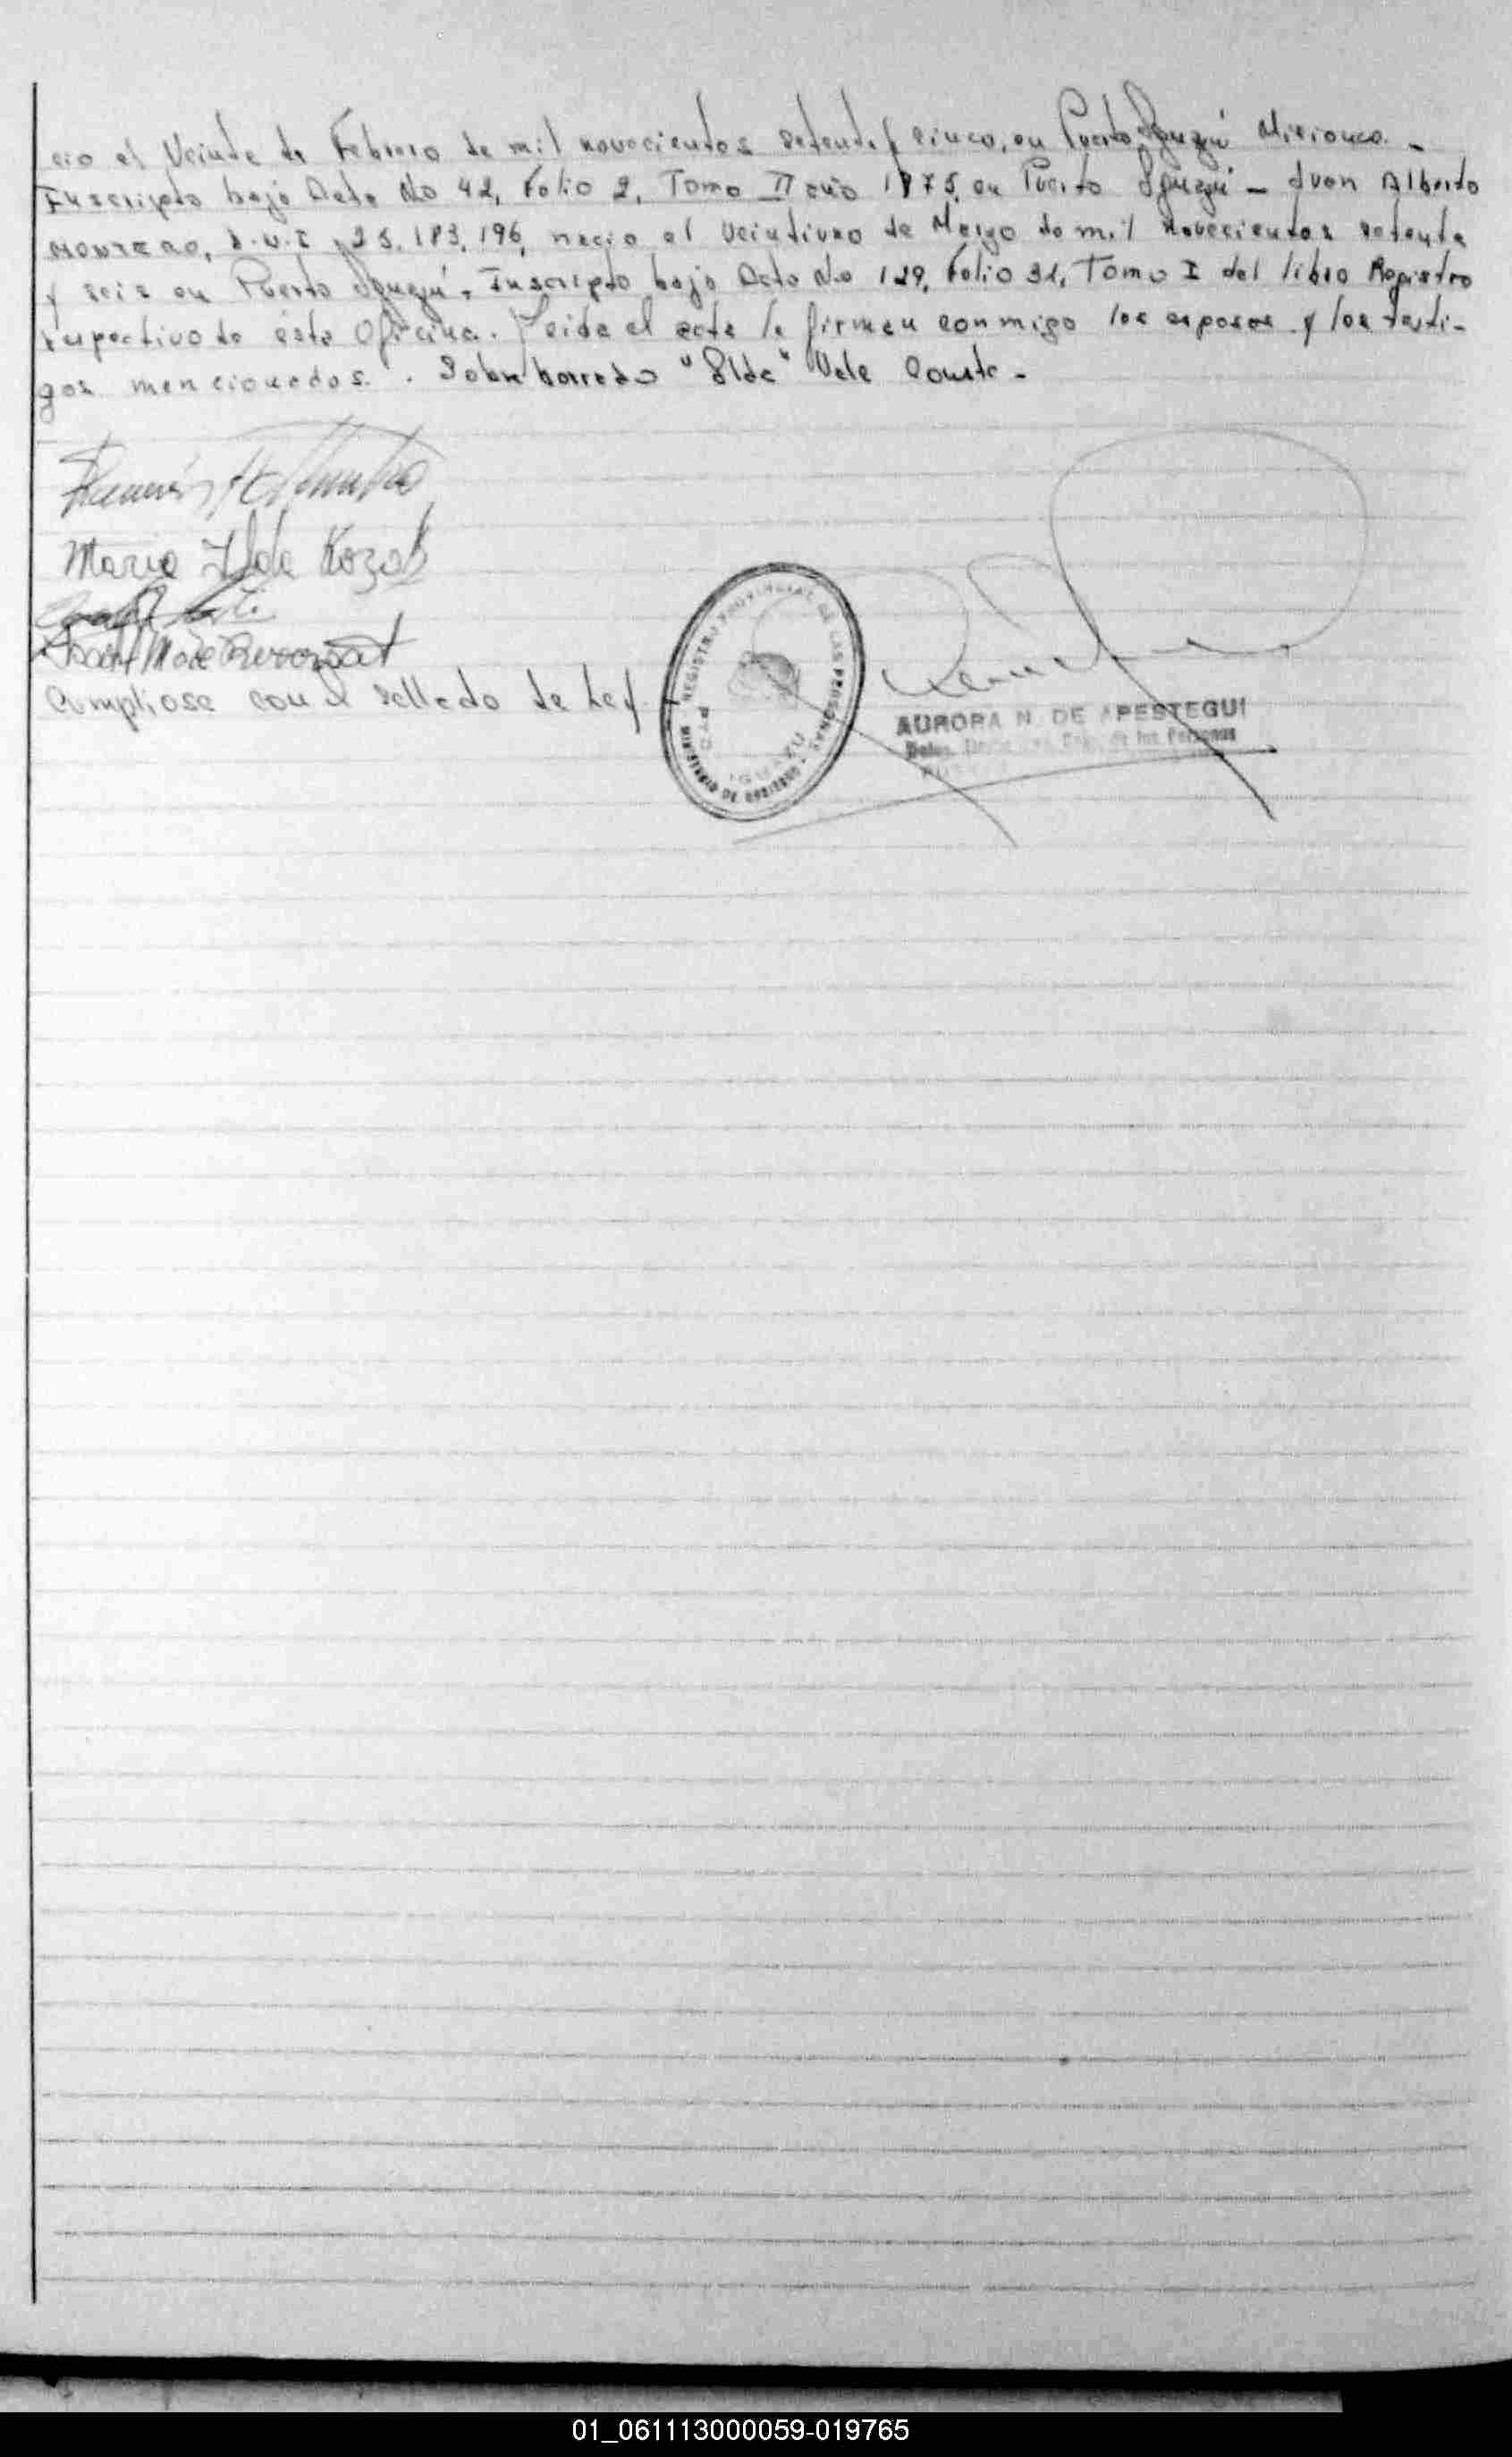 cio el Veinte de Febrero de mil novecientos setenta y cinco, en Puerto Iguazú Misiones. -
Inscripto bajo Acta No 42, Folio 2, Tomo II año 1975, en Puerto Iguazú - Juan Alberto
MONTERO, D.N.I 25.183.196, nacio el Veintiuno de Marzo de mil novecientos setenta
y seis en Puerto Iguazú. Inscripto bajo Acta No 129, Folio 31, Tomo I del libro Registro
respectivo de ésta Oficina. Leida el acta la firman conmigo los esposos y los testi-
gos mencionados. . Sobre borrado "Ilda" Vale Conste -
Maria Ilda Kozak
Cumpliose con el sellado de Ley.
REGISTRO PROVINCIAL DE LAS PERSONAS
PTO IGUAZU
MINISTERIO DE GOBIERNO
AURORA N. DE APESTEGUI
de las Personas
01_061113000059-019765